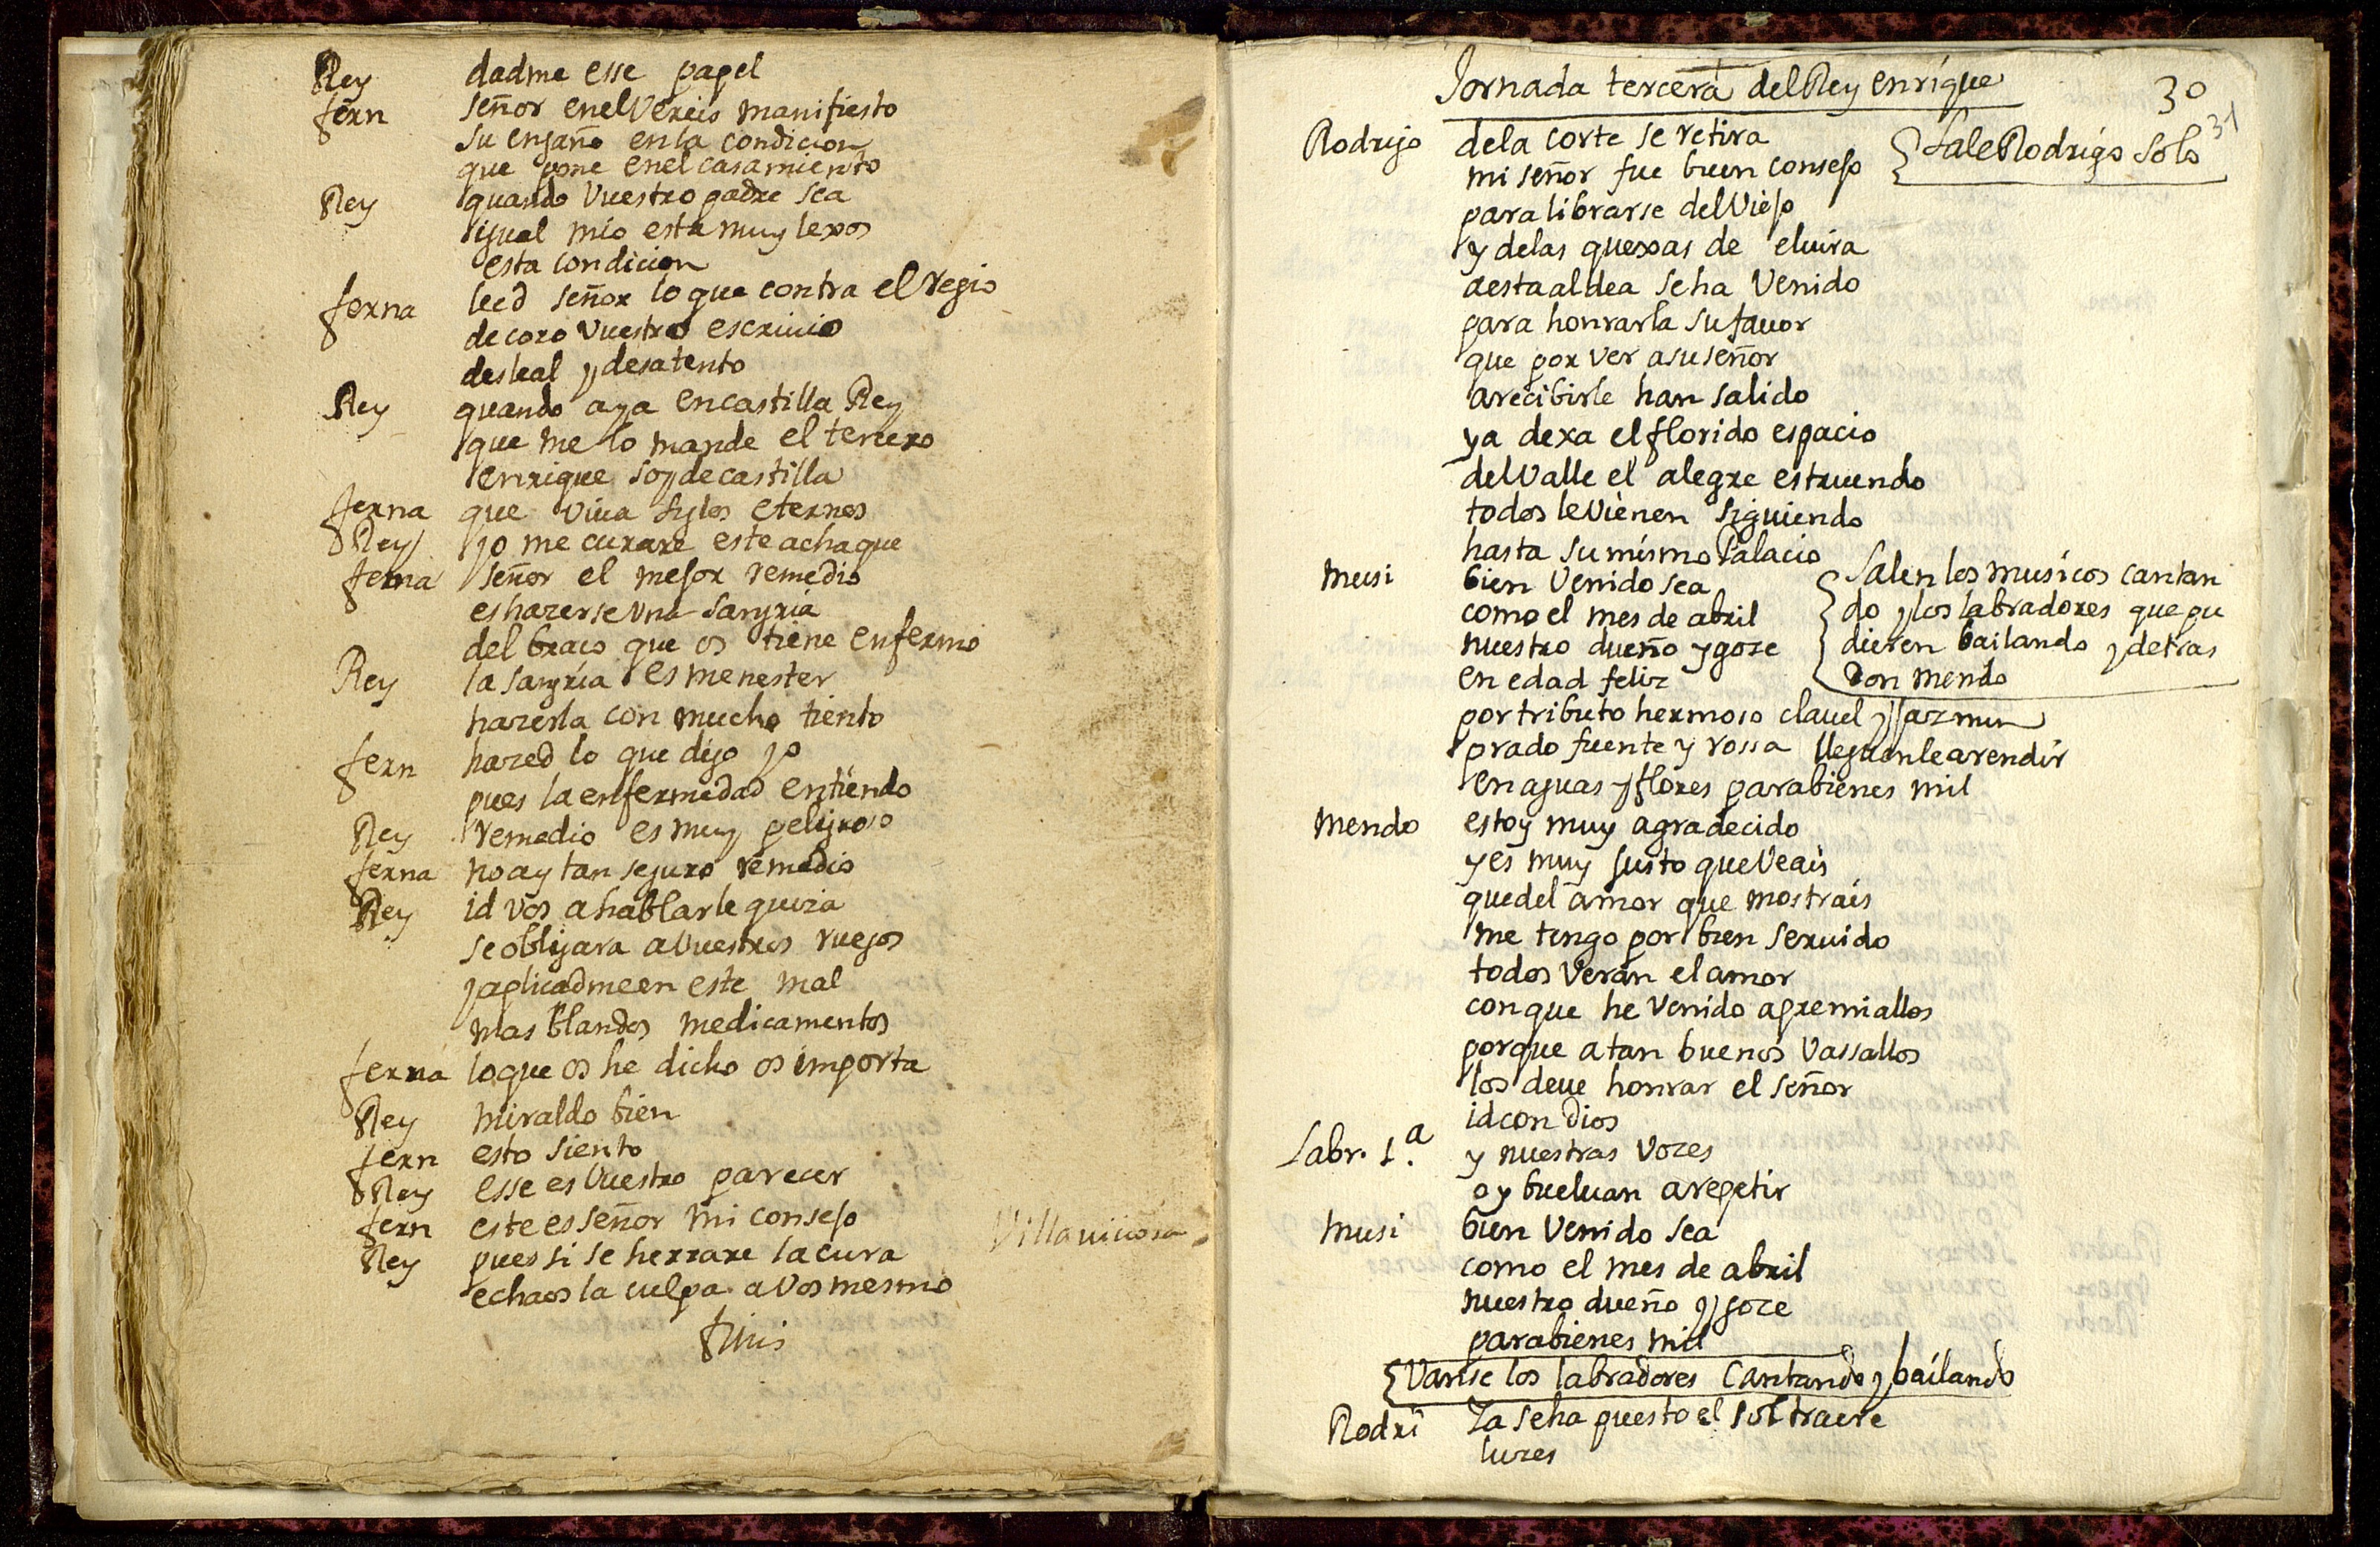 Rey dadme esse papel
fern señor enel Vereis manifiesto
su engaño en la condicion
que pone enel casamiento
Rey quando Vuestro padre sea
igual mio esta muy lexos
esta condicion
ferna leed señor lo que contra el regio
decoro Vuestro escriuio
desleal y desatento
Rey quando aya en castilla Rey
que me lo mande el tercero
enrique soy de castilla
ferna que viua siglos eternos
Rey yo me curare este achaque
ferna señor el mejor remedio
es hazerse vna sangria
del braço que os tiene enfermo
Rey la sangria es menester
hazerla con mucho tiento
fern hazed lo que digo yo
pues la enfermedad entiendo
Rey remedio es muy peligroso
ferna no ay tan seguro remedio
Rey id vos a hablarle quiza
se obligara a Vuestros ruegos
y aplicadme en este mal
mas blandos medicamentos
ferna lo que os he dicho os importa
Rey miraldo bien
fern esto siento
Rey esse es Vuestro parecer
fern este es señor mi consejo
Villauiciosa
Rey pues si se herrare la cura
echaos la culpa a vos mesmo
finis
Jornada tercera del Rey enrique
30
31
Rodrigo dela corte se retira
{Sale Rodrigo solo
mi señor fue buen consejo
para librarse del Viejo
y delas quexas de eluira
a esta aldea se ha Venido
para honrarla su fauor
que por ver a su señor
a recibirle han salido
ya dexa el florido espacio
del Valle el alegre estruendo
todos le vienen siguiendo
hasta su mismo Palacio
Musi bien Venido sea
{Salen los musicos cantan
como el mes de abril
do y los labradores que pu
nuestro dueño y goze
dieren bailando y detras
en edad feliz
Don mendo
por tributo hermoso clauel y jazmin
prado fuente y rossa lleguenle a rendir
en aguas y flores parabienes mil
Mendo estoy muy agradecido
y es muy justo que Veais
que del amor que mostrais
me tengo por bien seruido
todos Veran el amor
con que he venido a premiallos
porque a tan buenos vassallos
los deue honrar el señor
id con Dios
Labr. 1.a y nuestras vozes
oy bueluan a repetir
Musi bien Venido sea
como el mes de abril
nuestro dueño y goze
parabienes mil
{Vanse los labradores cantando y bailando
Rodri Ya se ha puesto el sol traere
luzes